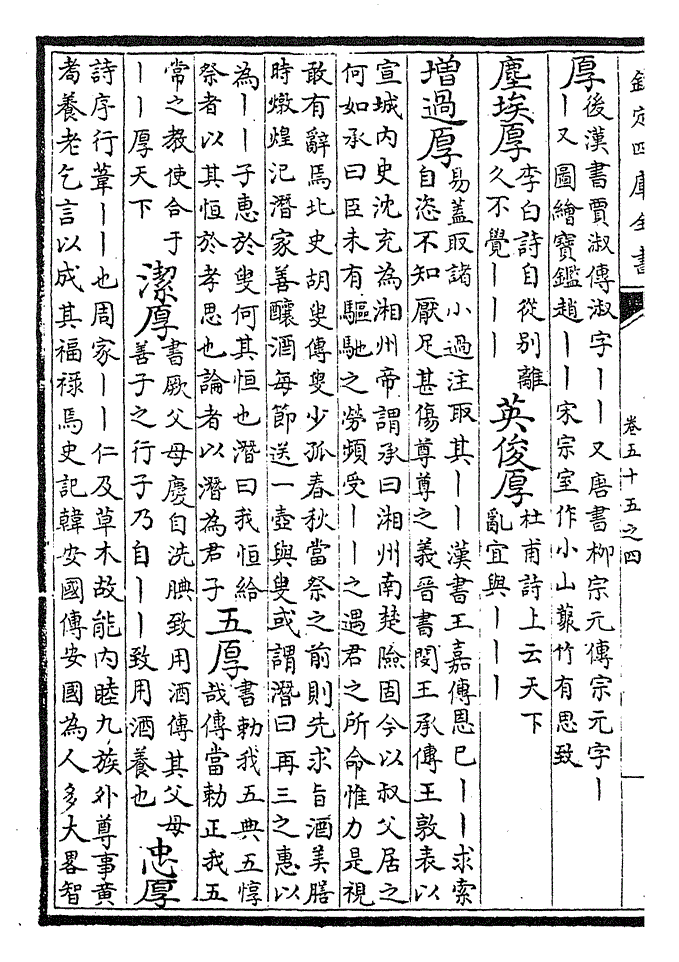 欽定四庫全書 卷五十五之四
厚
後漢書賈淑傳淑字丨丨又唐書柳宗元傳宗元字丨
丨又圖繪寶鑑趙丨丨宋宗室作小山藂竹有思致
塵埃厚
李白詩自從别離
久不覺丨丨丨
英俊厚
杜甫詩上云天下
亂宜與丨丨丨
增過厚
易蓋取諸小過注取其丨丨漢書王嘉傳恩已丨丨求索
自恣不知厭足甚傷尊尊之義晉書閔王承傳王敦表以
宣城内史沈充為湘州帝謂承曰湘州南楚險固今以叔父居之
何如承曰臣未有驅馳之勞頻受丨丨之遇君之所命惟力是視
敢有辭焉北史胡叟傳叟少孤春秋當祭之前則先求旨酒美膳
時燉煌氾潛家善釀酒每節送一壺與叟或謂潛曰再三之惠以
為丨丨子惠於叟何其恒也潛曰我恒給
祭者以其恒於孝思也論者以潛為君子
五厚
書勅我五典五惇
哉傳當勅正我五
常之教使合于
丨丨厚天下
潔厚
書厥父母慶自洗腆致用酒傳其父母
善子之行子乃自丨丨致用酒養也
忠厚
詩序行葦丨丨也周家丨丨仁及草木故能内睦九族外尊事黄
耇養老乞言以成其福禄焉史記韓安國傳安國為人多大畧智